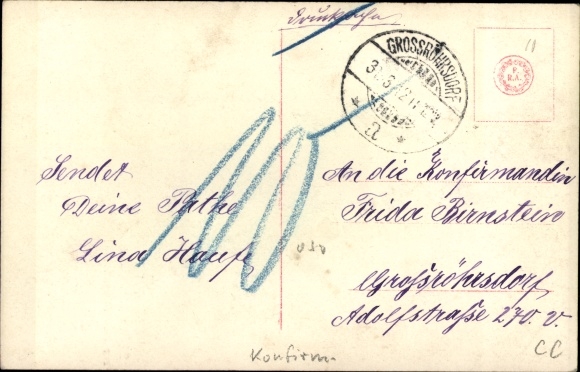 Drucksache
11
GROSSRÖHRSDORF
P.
R.A.
Sendet
Deine Pathe
Lina Haufe
An die Konfirmandin
Frida Birnstein
Großröhrsdorf
Adolfstraße 270. v.
10
Konfirm.
CC